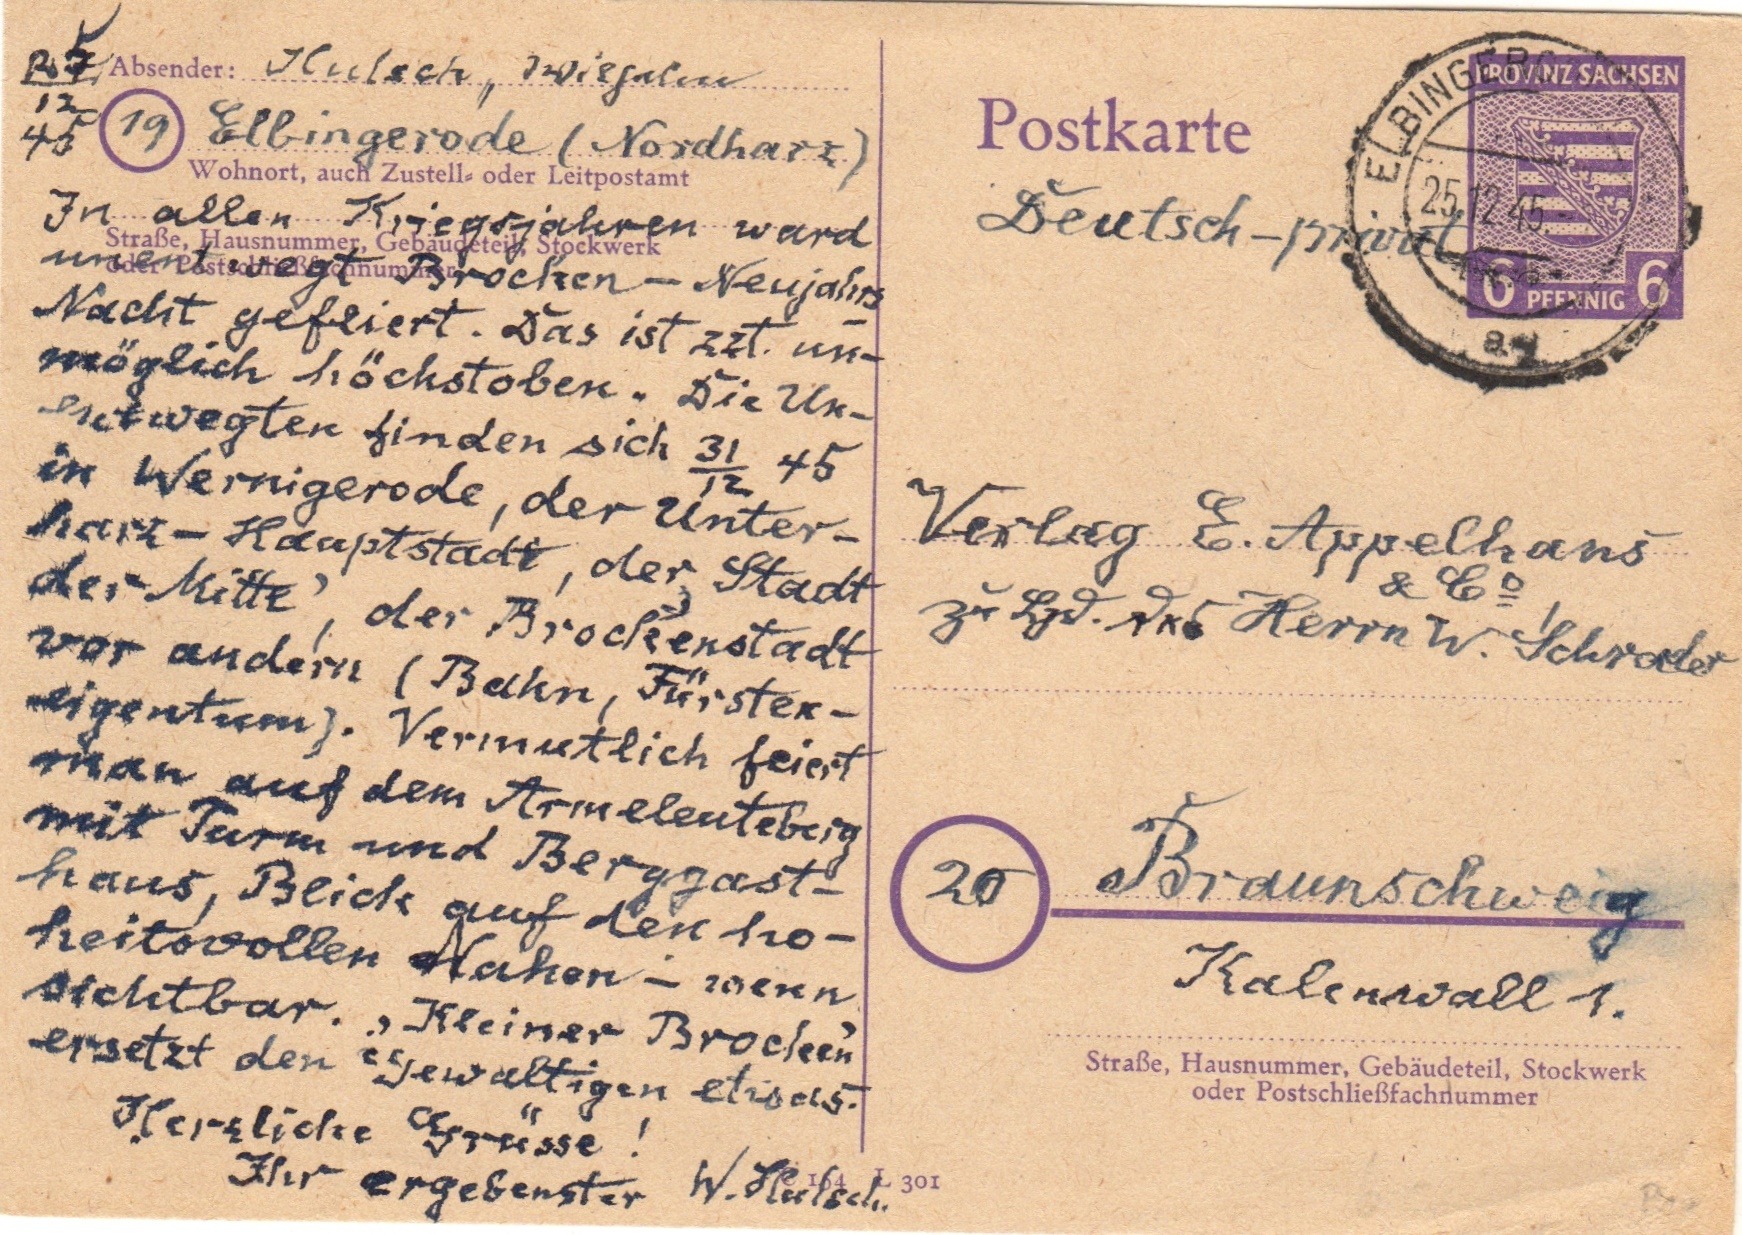 25
12
45
Absender: Hulsch, Wiegelm
19 Elbingerode (Nordharz)
Wohnort, auch Zustell- oder Leitpostamt
Straße, Hausnummer, Gebäudeteil, Stockwerk
oder Postschließfachnummer
In allen Kriegsjahren ward
unentwegt Brocken-Neujahrs
Nacht gefeiert. Das ist zzt. un-
möglich höchstoben. Die Un-
entwegten finden sich 31/12 45
in Wernigerode, der Unter-
harz-Hauptstadt, der Stadt
der Mitte', der Brockenstadt
vor andern (Bahn, Fürsten-
eigentum). Vermutlich feiert
man auf dem Armeleuteberg
mit Turm und Berggast-
haus, Blick auf den ho-
heitsvollen Nahen - wenn
sichtbar. ,Kleiner Brocken'
ersetzt den Gewaltigen etwas.
Herzliche Grüsse!
Ihr ergebenster W. Hulsch.
C 164 L 301
Postkarte
Deutsch-privat
PROVINZ SACHSEN
6 PFENNIG 6
ELBINGERODE
25.12.45.-
a
Verlag E. Appelhans
& Co
zu Hd. des Herrn W. Schrader
20 Braunschweig
Kalenwall 1.
Straße, Hausnummer, Gebäudeteil, Stockwerk
oder Postschließfachnummer